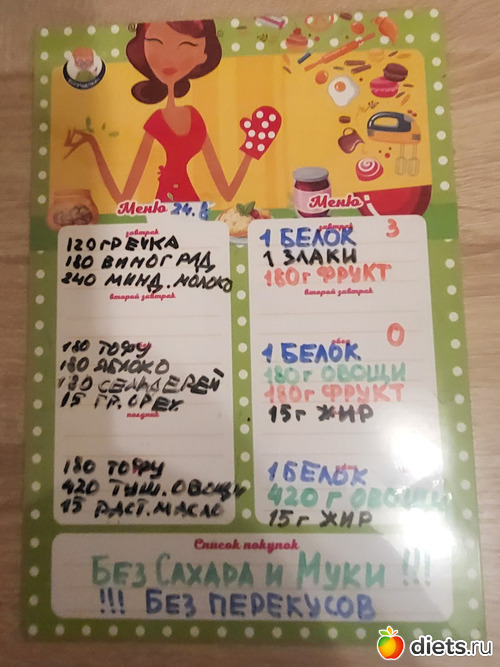 Меню 24.8
завтрак
120 ГРЕЧКА
180 ВИНОГРАД
240 МИНД. МОЛОКО
второй завтрак
180 ТОФУ
180 ЯБЛОКО
180 СЕЛЬДЕРЕЙ
15 ГР. ОРЕХ
полдник
180 ТОФУ
420 ТУШ. ОВОЩИ
15 РАСТ. МАСЛО
Меню
завтрак
З
1 БЕЛОК
1 ЗЛАКИ
180г ФРУКТ
второй завтрак
обед
О
1 БЕЛОК
180г ОВОЩИ
180г ФРУКТ
15г ЖИР
1 БЕЛОК
420 г ОВОЩИ
15г ЖИР
Список покупок
БЕЗ САХАРА И МУКИ !!!
!!! БЕЗ ПЕРЕКУСОВ
diets.ru